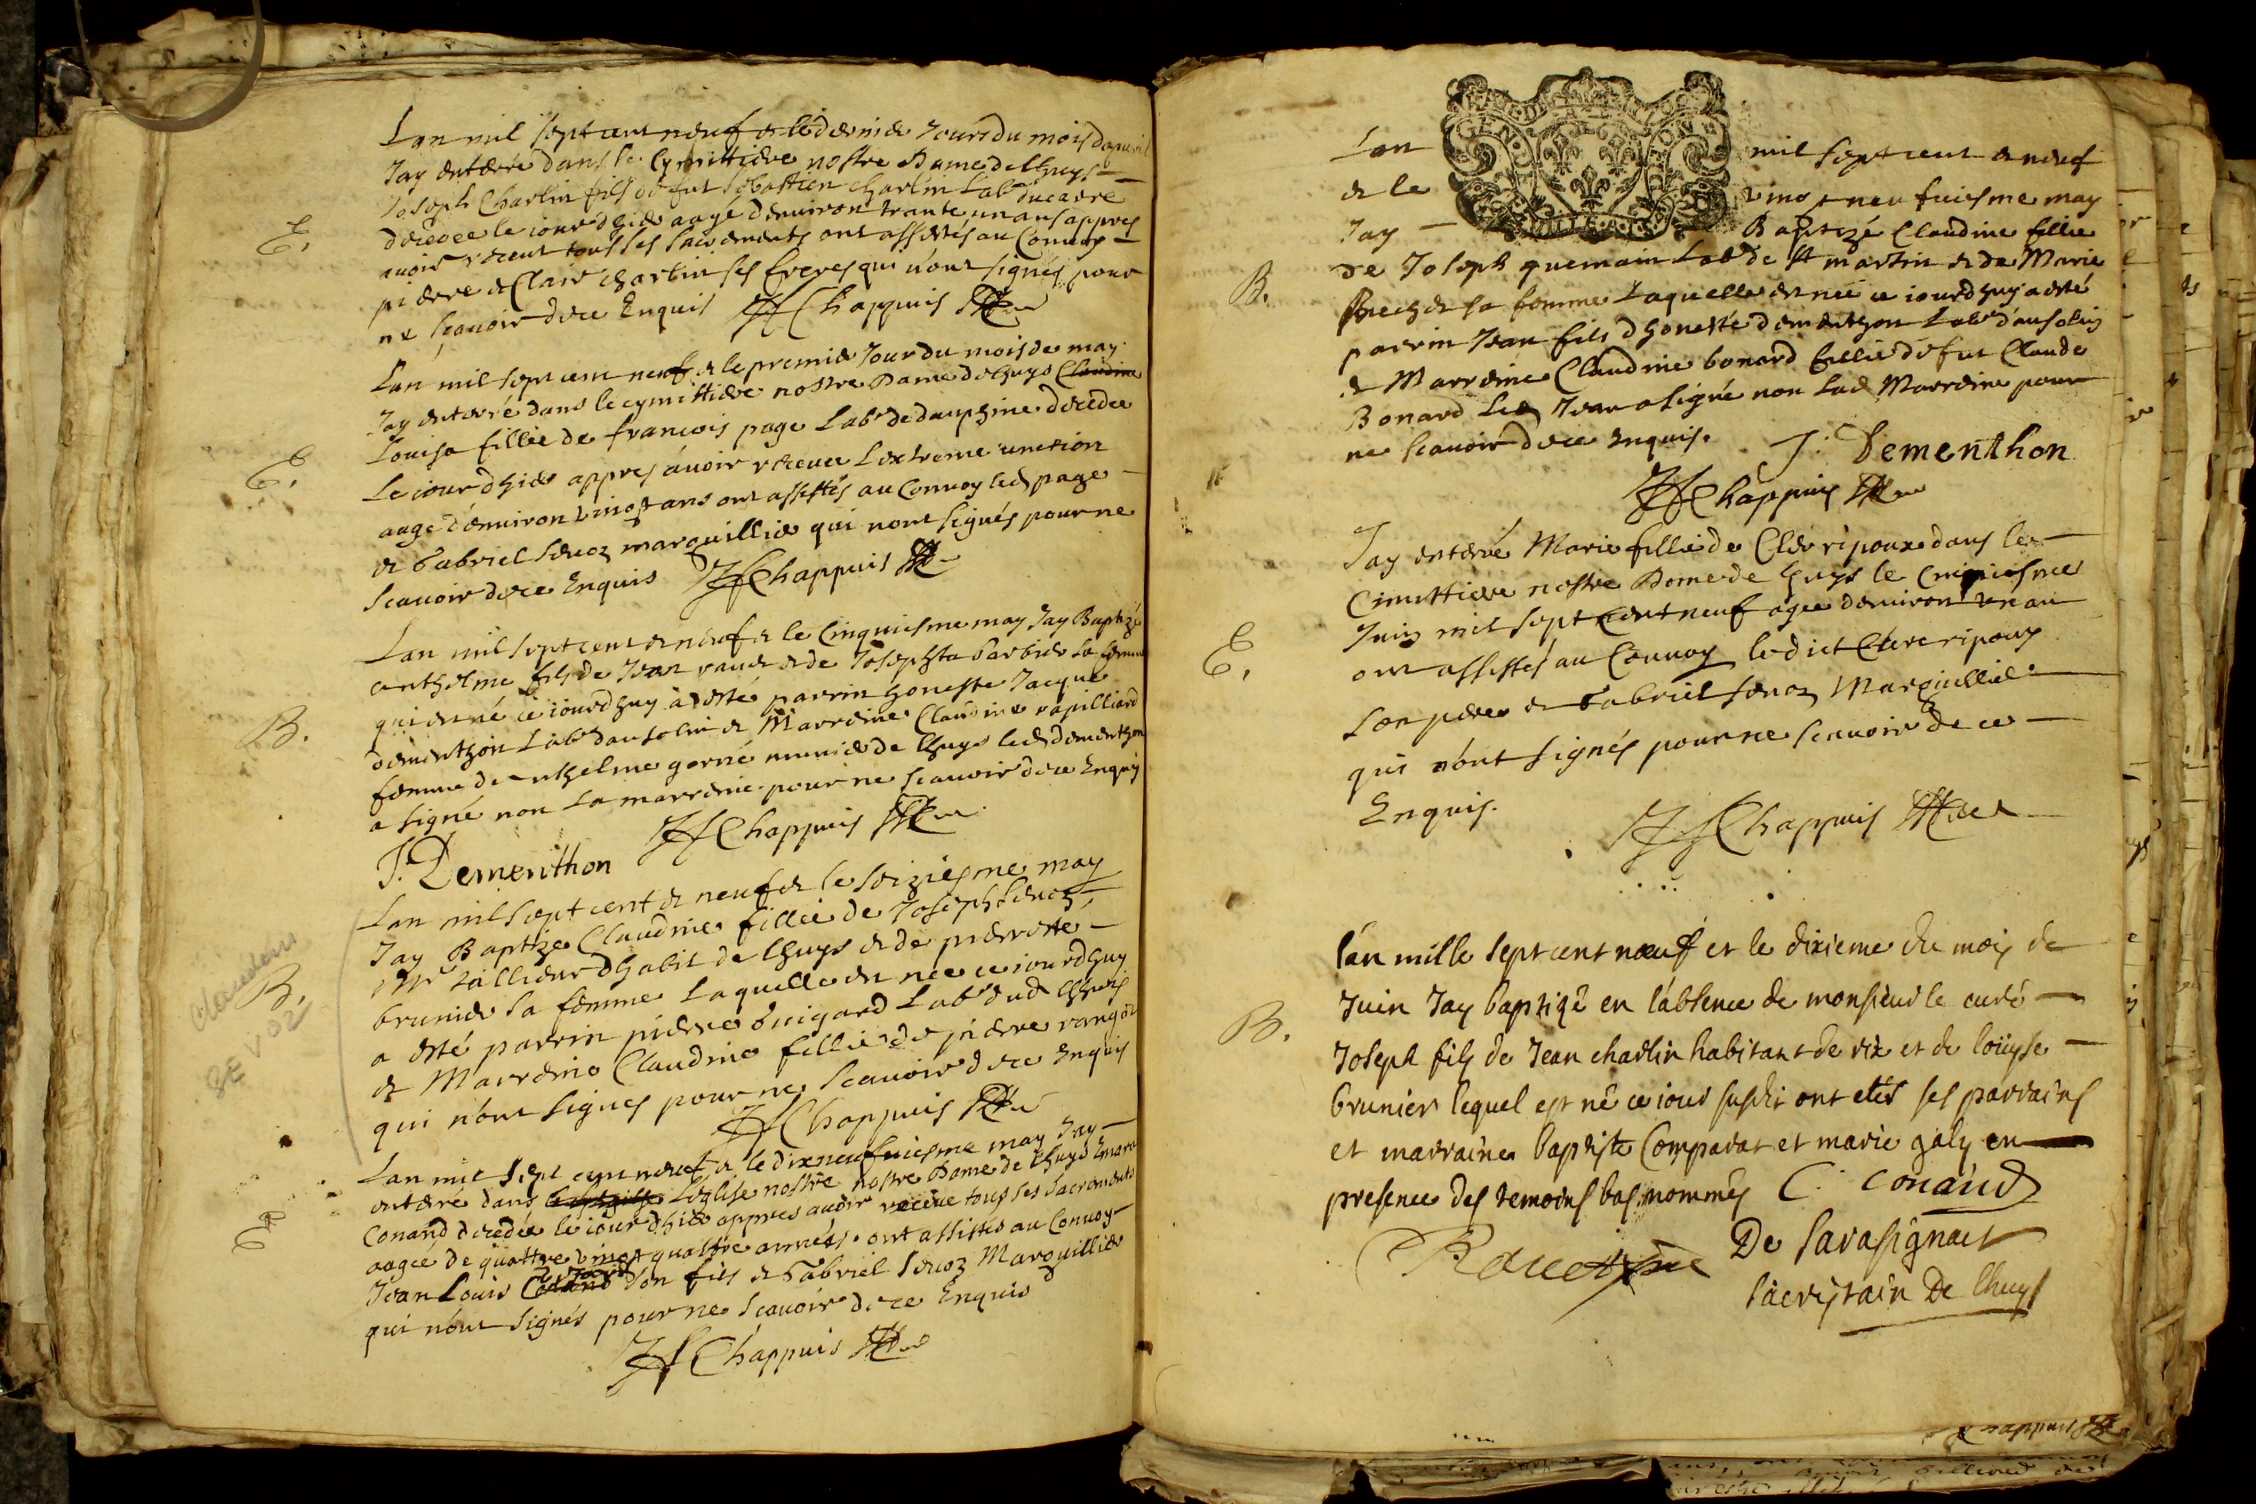 Lan mil sept cent neuf & le dernier Jour du mois dapvril
Jay enterré dans le Cymittiere nostre Dame de lhuys
Joseph Charlin fils de fut Sebastien Charlin Labr
decedee le iour dhier aagé denviron trante un ans appres
avoir receut tous ses sacrements ont assistés au Convoy
E.
pierre & Clair charlin ses freres qui n'ont signés pour
ne scavoir de ce Enquis Chappuis
Lan mil sept cent neuf & le premier Jour du mois de may
Jay enterré dans le cymittiere nostre Dame de lhuys Claudine
Louise fillie de francois page Labr de dauphine decedee
Le iour dhier appres avoir receue Lextreme unction
E.
aage denviron vingt ans ont assistés au Convoy led page
& Gabriel Sevoz marguillier qui nont signés pour ne
scavoir de ce Enquis Chappuis
Lan mil sept cent & neuf & le Cinquiesme may Jay Baptizé
anthelme fils de Jean & de Josephta barbier sa femme
qui est né ce iourdhuy à esté parrin honeste Jacque
B.
dementhon Labr dansolin & Marreine Claudine rapilliard
femme de anthelme munier de lhuys led dementhon
a signé non la marreine pour ne scavoir de ce Enquis
Chappuis
J. Dementhon
Lan mil sept cent & neuf & le seiziesme may
Jay Baptize Claudine fillie de Joseph Sevoz
Mr tallieur dhabit de lhuys & de pierrette
B.
Claudine
SEVOZ
brunier sa femme Laquelle est née ce iourdhuy
a esté parrin pierre guigard Labr dud lhuys
& Marreine Claudine fillie de pierre
qui n'ont signes pour ne scavoir de ce Enquis
Chappuis
Lan mil sept cent neuf & le dixneufviesme may Jay
enterré dans Léglise nostre nostre Dame de lhuys
Conand decedée le iour dhier appres avoir receue tous ses Sacrements
E
aagée de quattre vingt quattre années ont assistés au Convoy
Jean Louis son fils & Gabriel Sevoz Marguillier
qui n'ont signés pour ne scavoir de ce Enquis
Chappuis
Lan mil sept cent & neuf
& le vingt neufviesme may
Jay Baptizé Claudine fillie
de Joseph quemain Labr de st martin & de Marie
B.
sa femme Laquelle est née ce iourdhuy a esté
parrin Jean fils dhoneste dementhon Labr dansolin
& Marreine Claudine bonard fillie de fut Claude
Bonard led Jean a signé non lad Marreine pour
ne scavoir de ce Enquis. J. Dementhon
Chappuis
Jay enterré Marie fillie de Cler ripoux dans le
Cimittiere nostre Dame de lhuys le
Juin mil sept cent neuf agee denviron un an
E.
ont assistés au Convoy ledict Clere ripoux
son pere & Gabriel Sevoz Marguillier
qui n'ont signés pour ne scavoir de ce
Enquis.
Chappuis
l'an mille sept cent neuf et le dixieme du mois de
Juin Jay baptizé en l'absence de monsieur le curé
B.
Joseph fils de Jean charlin habitant de rix et de loüyse
brunier lequel est né ce iour susdit ont etés ses parrains
et marraine baptiste Comparat et marie galy en
presence des temoins bas nommés C. Conand
De Savasignact
sacristain De lhuys
Chappuis